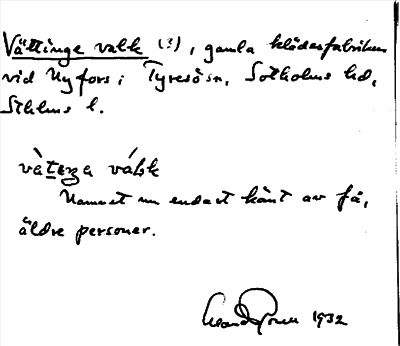 Vättinge valk (?), gamla klädesfabriken
vid Nyfors i Tyresö sn, Sotholms hd,
Sthlms l.
Namnet nu endast känt av få,
äldre personer.
1932